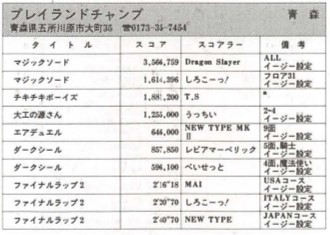 プレイランドチャンプ 青森
青森県五所川原市大町35 ☎0173-35-7454
タイトル スコア スコアラー 備考
マジックソード 3,564,759 Dragon Slayer ALL イージー設定
マジックソード 1,614,396 しろこーっ! フロア31 イージー設定
チキチキボーイズ 1,881,200 T.S *
大工の源さん 1,255,000 うっちい 2-4 イージー設定
エアデュエル 644,000 NEW TYPE MKⅡ 9面 イージー設定
ダークシール 857,850 レビアマーベリック 5面,騎士 イージー設定
ダークシール 594,100 べいせっと 4面,魔法使い イージー設定
ファイナルラップ2 2'16"18 MAI USAコース イージー設定
ファイナルラップ2 2'20"70 しろこーっ! ITALYコース イージー設定
ファイナルラップ2 2'40"70 NEW TYPE JAPANコース イージー設定